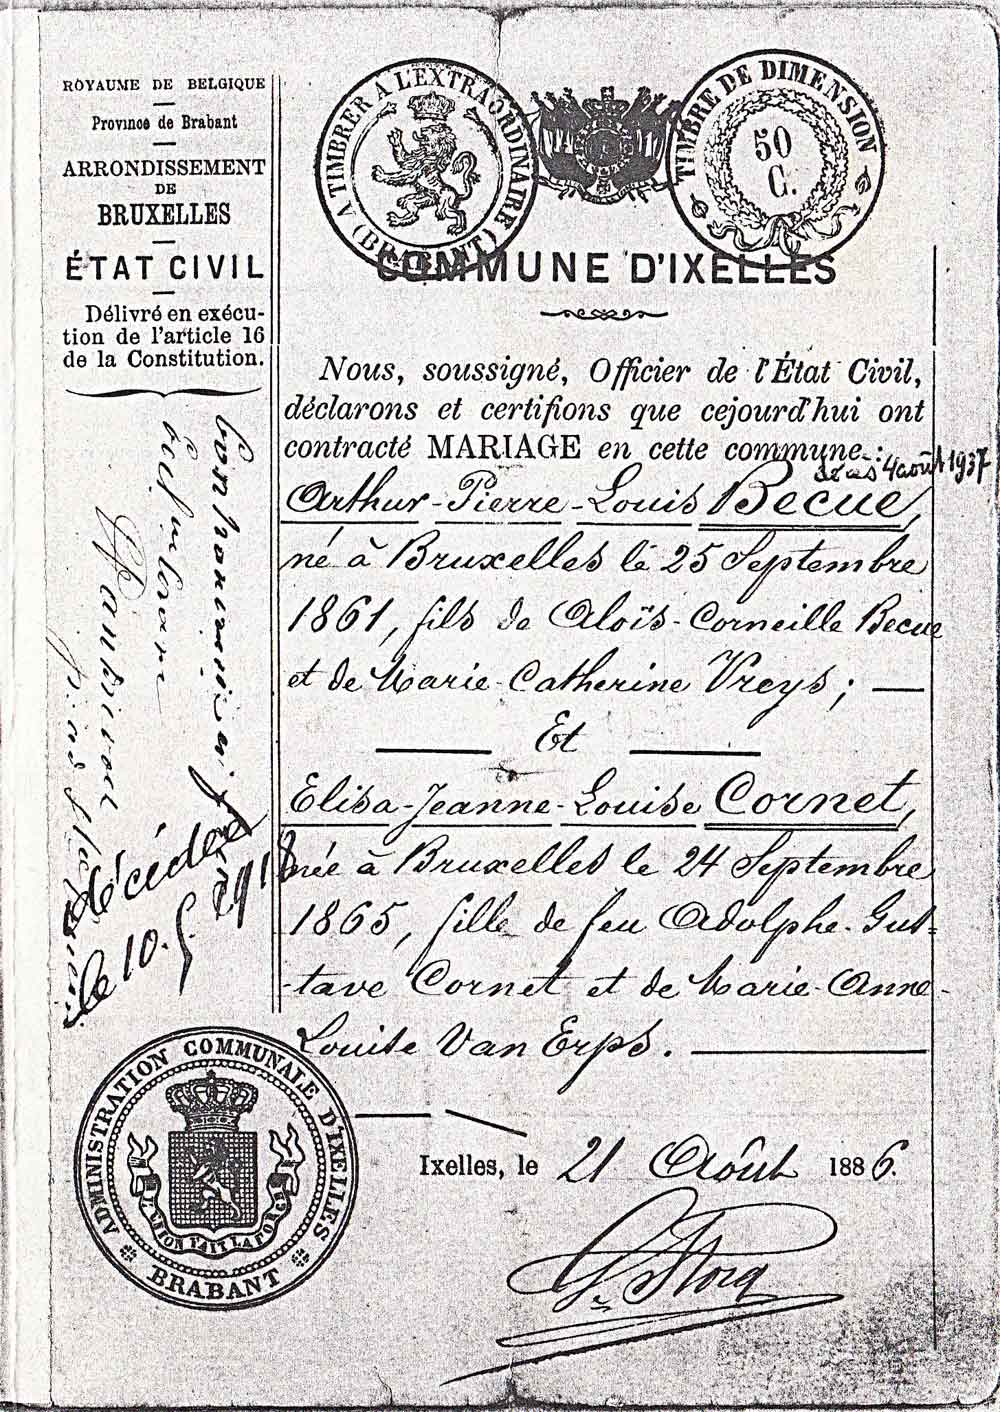 ROYAUME DE BELGIQUE
Province de Brabant
ARRONDISSEMENT
DE
BRUXELLES
ÉTAT CIVIL
Délivré en exécu-
tion de l'article 16
de la Constitution.
A TIMBRER À L'EXTRAORDINAIRE
(BRABANT)
TIMBRE DE DIMENSION
50
C.
COMMUNE D'IXELLES
Nous, soussigné, Officier de l'État Civil,
déclarons et certifions que cejourd'hui ont
contracté MARIAGE en cette commune :
4 août 1937
Arthur-Pierre-Louis Becue,
né à Bruxelles le 25 Septembre
1861, fils de Aloïs-Corneille Becue
et de Marie-Catherine Vreys; —
Et
Elisa-Jeanne-Louise Cornet,
née à Bruxelles le 24 Septembre
1865, fille de feu Adolphe-Gus=
-tave Cornet et de Marie-Anne-
Louise Van Erps.
décédée
le 10.5.1918
Ixelles, le 21 Août 1886.
ADMINISTRATION COMMUNALE D'IXELLES
L'UNION FAIT LA FORCE
BRABANT